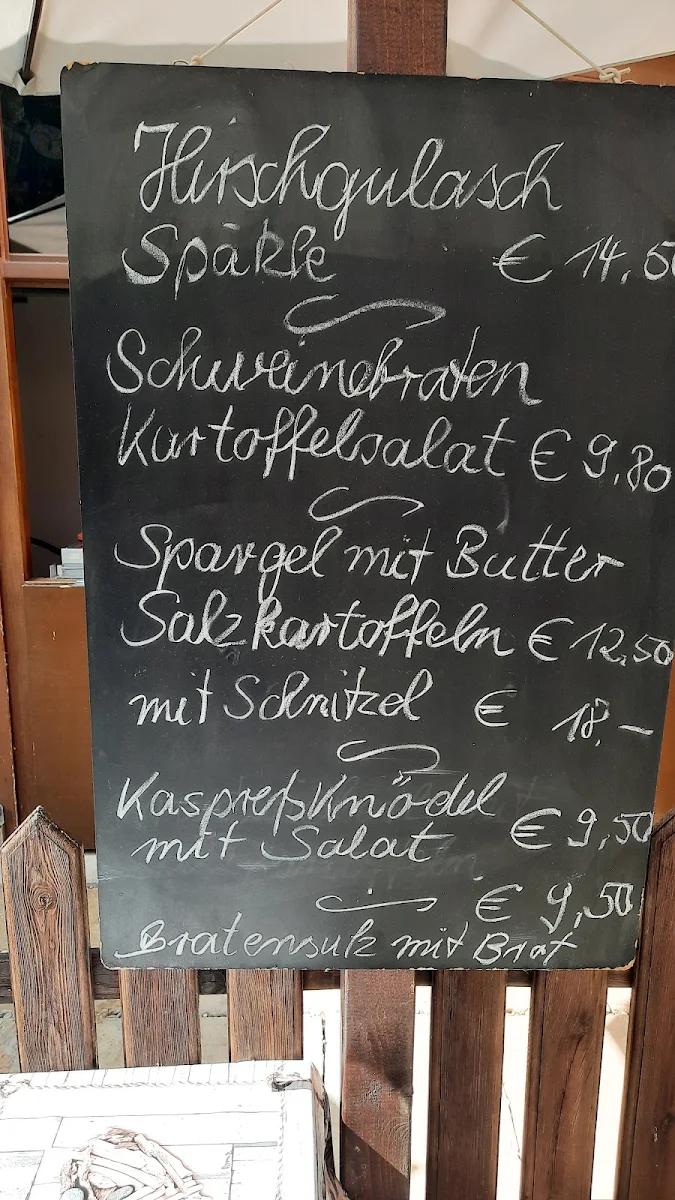 Hirschgulasch
Späzle € 14,50
Schweinebraten
Kartoffelsalat € 9,80
Spargel mit Butter
Salzkartoffeln € 12,50
mit Schnitzel € 18,-
Kaspreßknödel
mit Salat € 9,50
€ 9,50
Bratensulz mit Brat